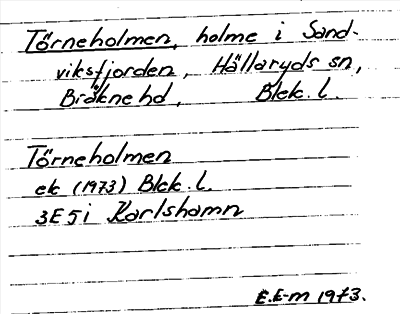 Törneholmen, holme i Sand-
viksfjorden, Hällaryds sn,
Bräkne hd, Blek. l.
Törneholmen
ek (1973) Blek. l.
3E5i Karlshamn
E.E-m 1973.